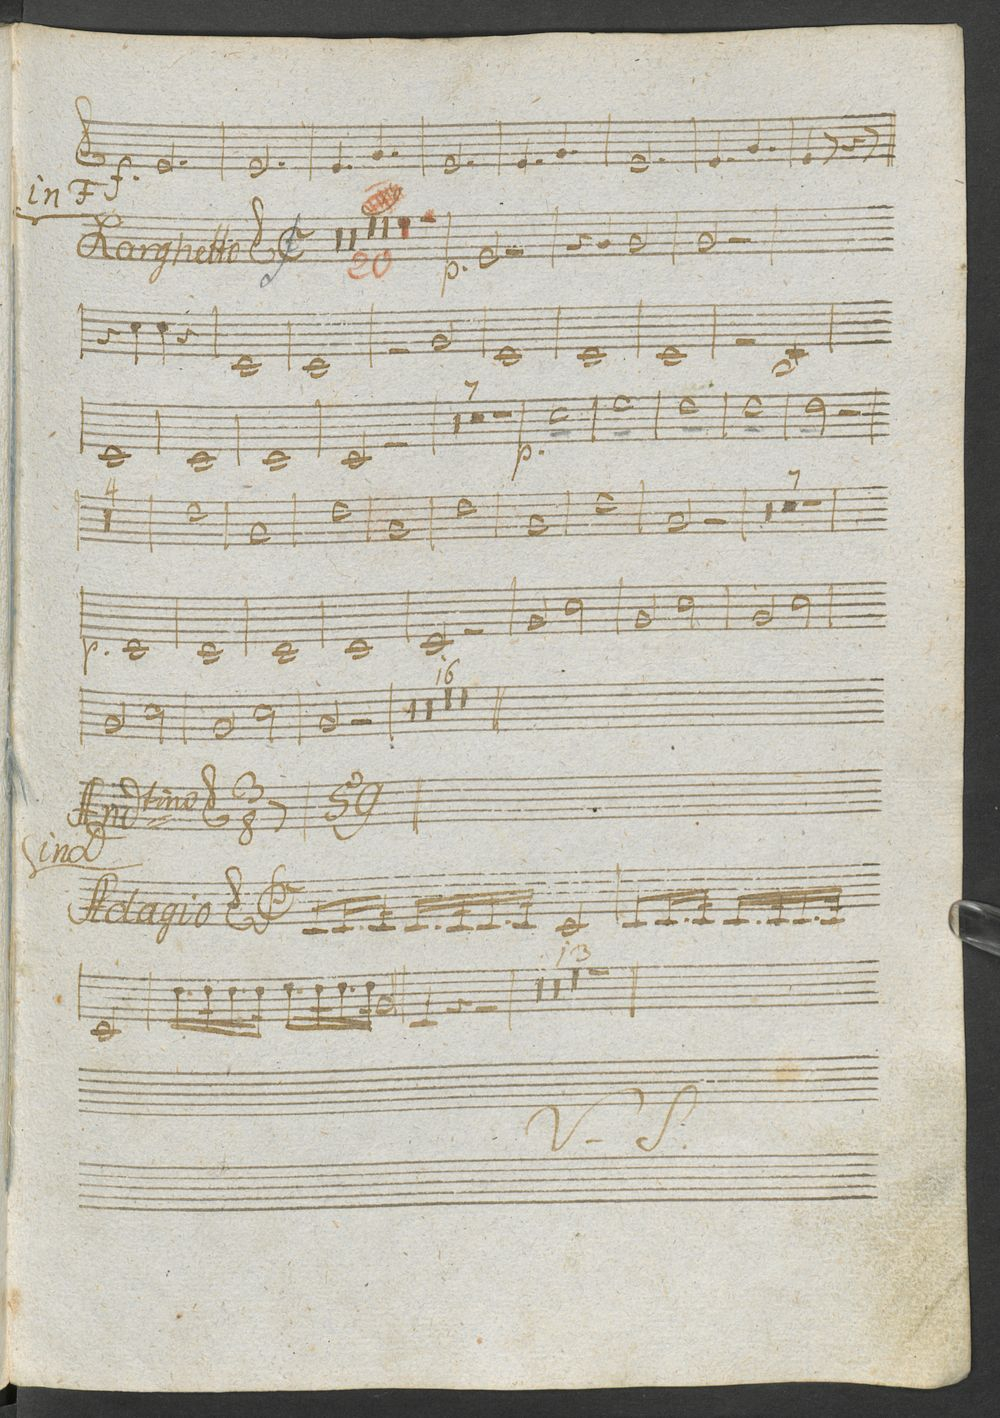 f.
in F
Larghetto 20 p.
7 p.
4 7
p.
16
And tino 3 8 59
in D
Adagio
13
V. S.